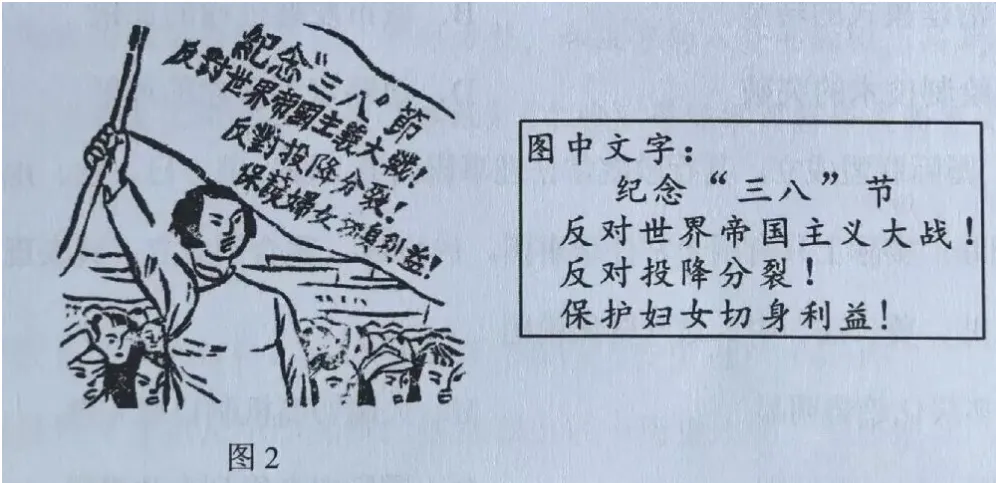 紀念“三八”節
反對世界帝國主義大戰！
反對投降分裂！
保護婦女切身利益！
图中文字：
纪念“三八”节
反对世界帝国主义大战！
反对投降分裂！
保护妇女切身利益！
图2